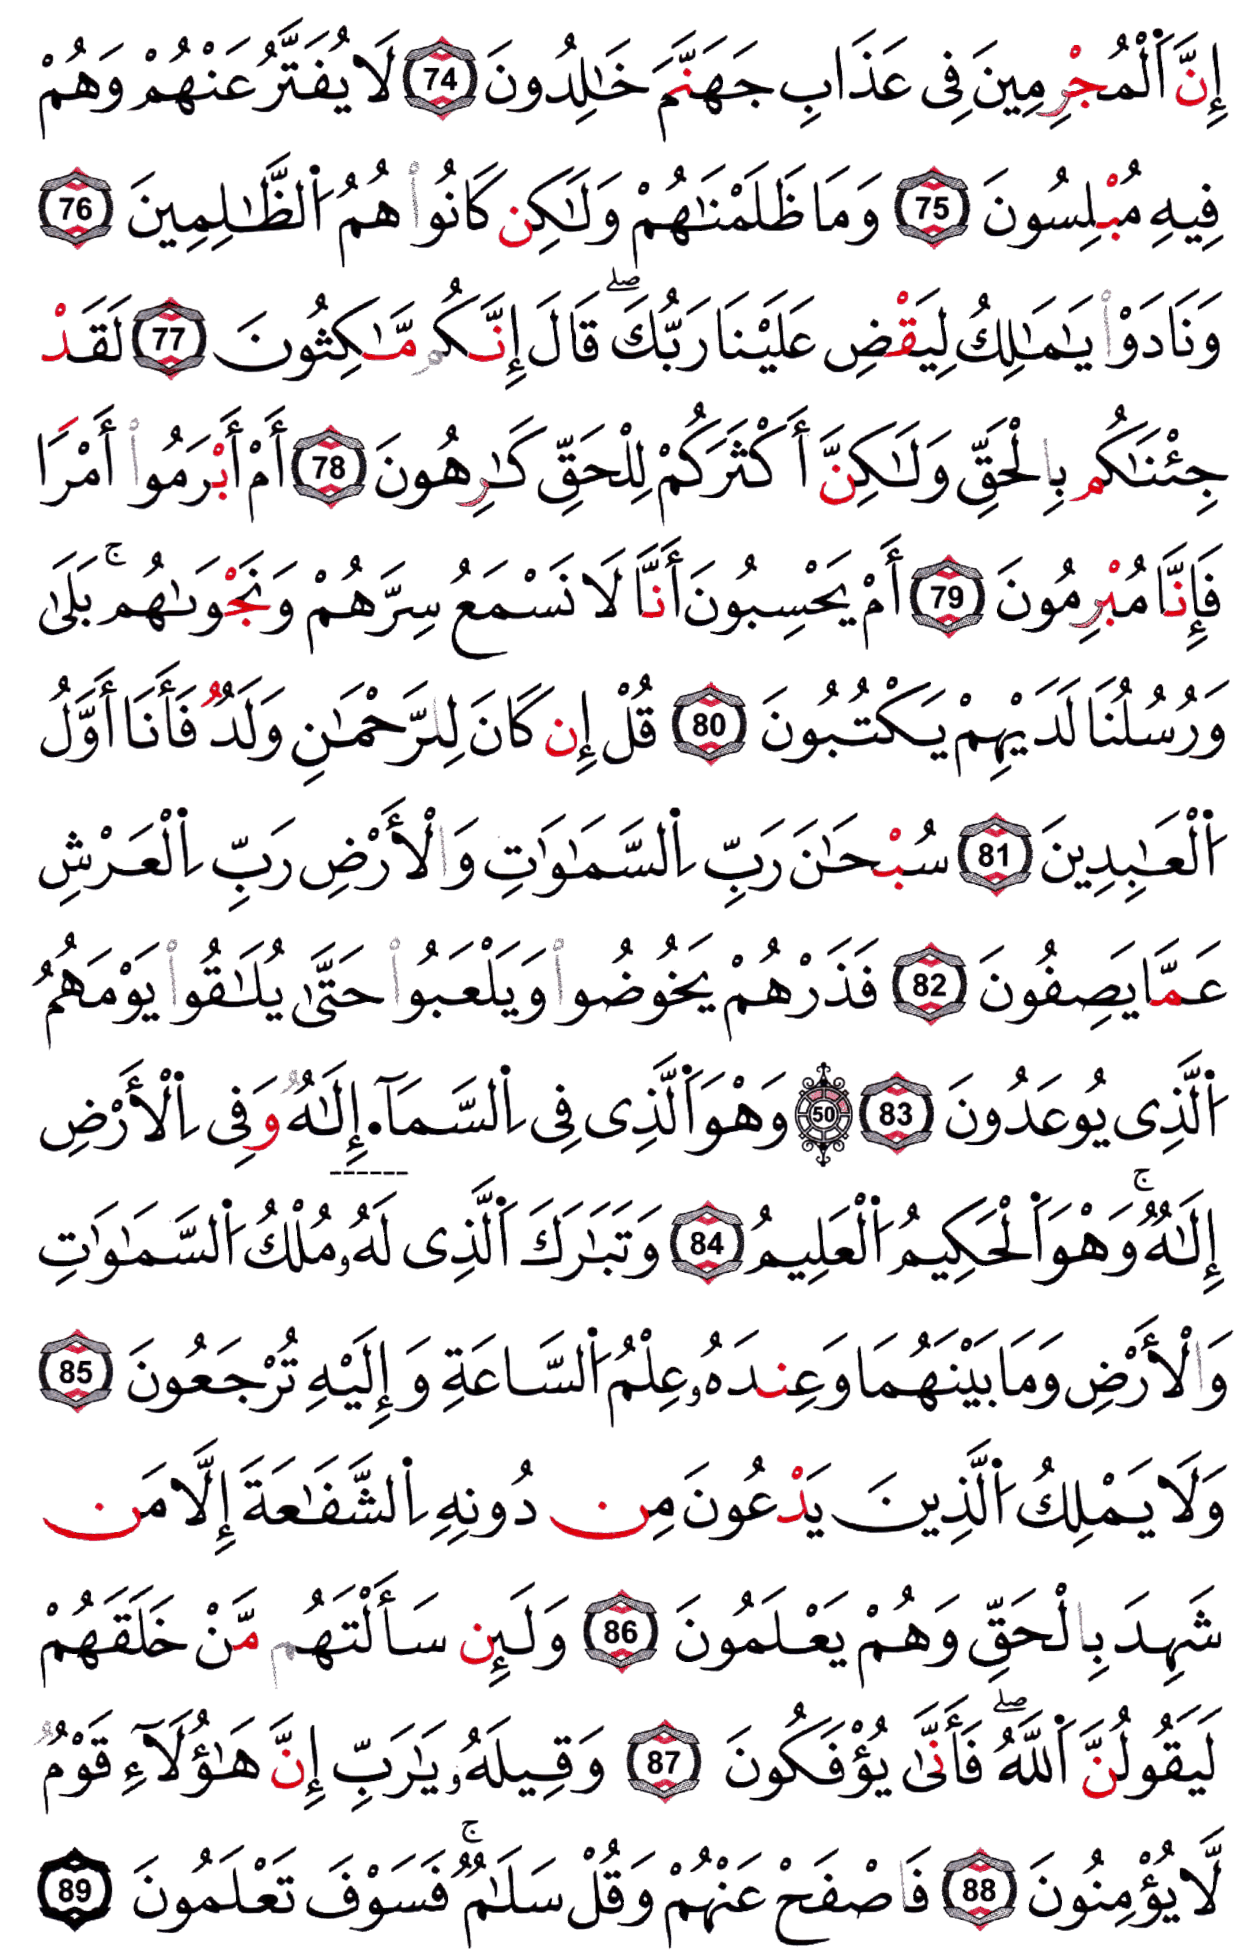 إِنَّ اَ۬لْمُجْرِمِينَ فِى عَذَابِ جَهَنَّمَ خَٰلِدُونَ 74 لَا يُفَتَّرُ عَنْهُمْ وَهُمْ
فِيهِ مُبْلِسُونَ 75 وَمَا ظَلَمْنَٰهُمْ وَلَٰكِن كَانُواْ هُمُ اُ۬لظَّٰلِمِينَ 76
وَنَادَوْاْ يَٰمَٰلِكُ لِيَقْضِ عَلَيْنَا رَبُّكَۖ قَالَ إِنَّكُم مَّٰكِثُونَ 77 لَقَدْ
جِئْنَٰكُم بِالْحَقِّ وَلَٰكِنَّ أَكْثَرَكُمْ لِلْحَقِّ كَٰرِهُونَ 78 أَمْ أَبْرَمُواْ أَمْرًا
فَإِنَّا مُبْرِمُونَ 79 أَمْ يَحْسِبُونَ أَنَّا لَا نَسْمَعُ سِرَّهُمْ وَنَجْوَىٰهُمۚ بَلَىٰ
وَرُسُلُنَا لَدَيْهِمْ يَكْتُبُونَ 80 قُلْ إِن كَانَ لِلرَّحْمَٰنِ وَلَدٌ فَأَنَا أَوَّلُ
اُ۬لْعَٰبِدِينَ 81 سُبْحَٰنَ رَبِّ اِ۬لسَّمَٰوَٰتِ وَالْأَرْضِ رَبِّ اِ۬لْعَرْشِ
عَمَّا يَصِفُونَ 82 فَذَرْهُمْ يَخُوضُواْ وَيَلْعَبُواْ حَتَّىٰ يُلَٰقُواْ يَوْمَهُمُ
اُ۬لَّذِى يُوعَدُونَ 83 50 وَهْوَ اَ۬لَّذِى فِى اِ۬لسَّمَآ. إِلَٰهٌ وَفِى اِ۬لْأَرْضِ
إِلَٰهٌۚ وَهْوَ اَ۬لْحَكِيمُ اُ۬لْعَلِيمُ 84 وَتَبَٰرَكَ اَ۬لَّذِى لَهُۥ مُلْكُ اُ۬لسَّمَٰوَٰتِ
وَالْأَرْضِ وَمَا بَيْنَهُمَا وَعِندَهُۥ عِلْمُ اُ۬لسَّاعَةِ وَإِلَيْهِ تُرْجَعُونَ 85
وَلَا يَمْلِكُ اُ۬لَّذِينَ يَدْعُونَ مِن دُونِهِ اِ۬لشَّفَٰعَةَ إِلَّا مَن
شَهِدَ بِالْحَقِّ وَهُمْ يَعْلَمُونَ 86 وَلَئِن سَأَلْتَهُم مَّنْ خَلَقَهُمْ
لَيَقُولُنَّ اَ۬للَّهُۖ فَأَنَّىٰ يُؤْفَكُونَ 87 وَقِيلَهُۥ يَٰرَبِّ إِنَّ هَٰؤُلَآءِ قَوْمٌ
لَّا يُؤْمِنُونَ 88 فَاصْفَحْ عَنْهُمْ وَقُلْ سَلَٰمٌۚ فَسَوْفَ تَعْلَمُونَ 89